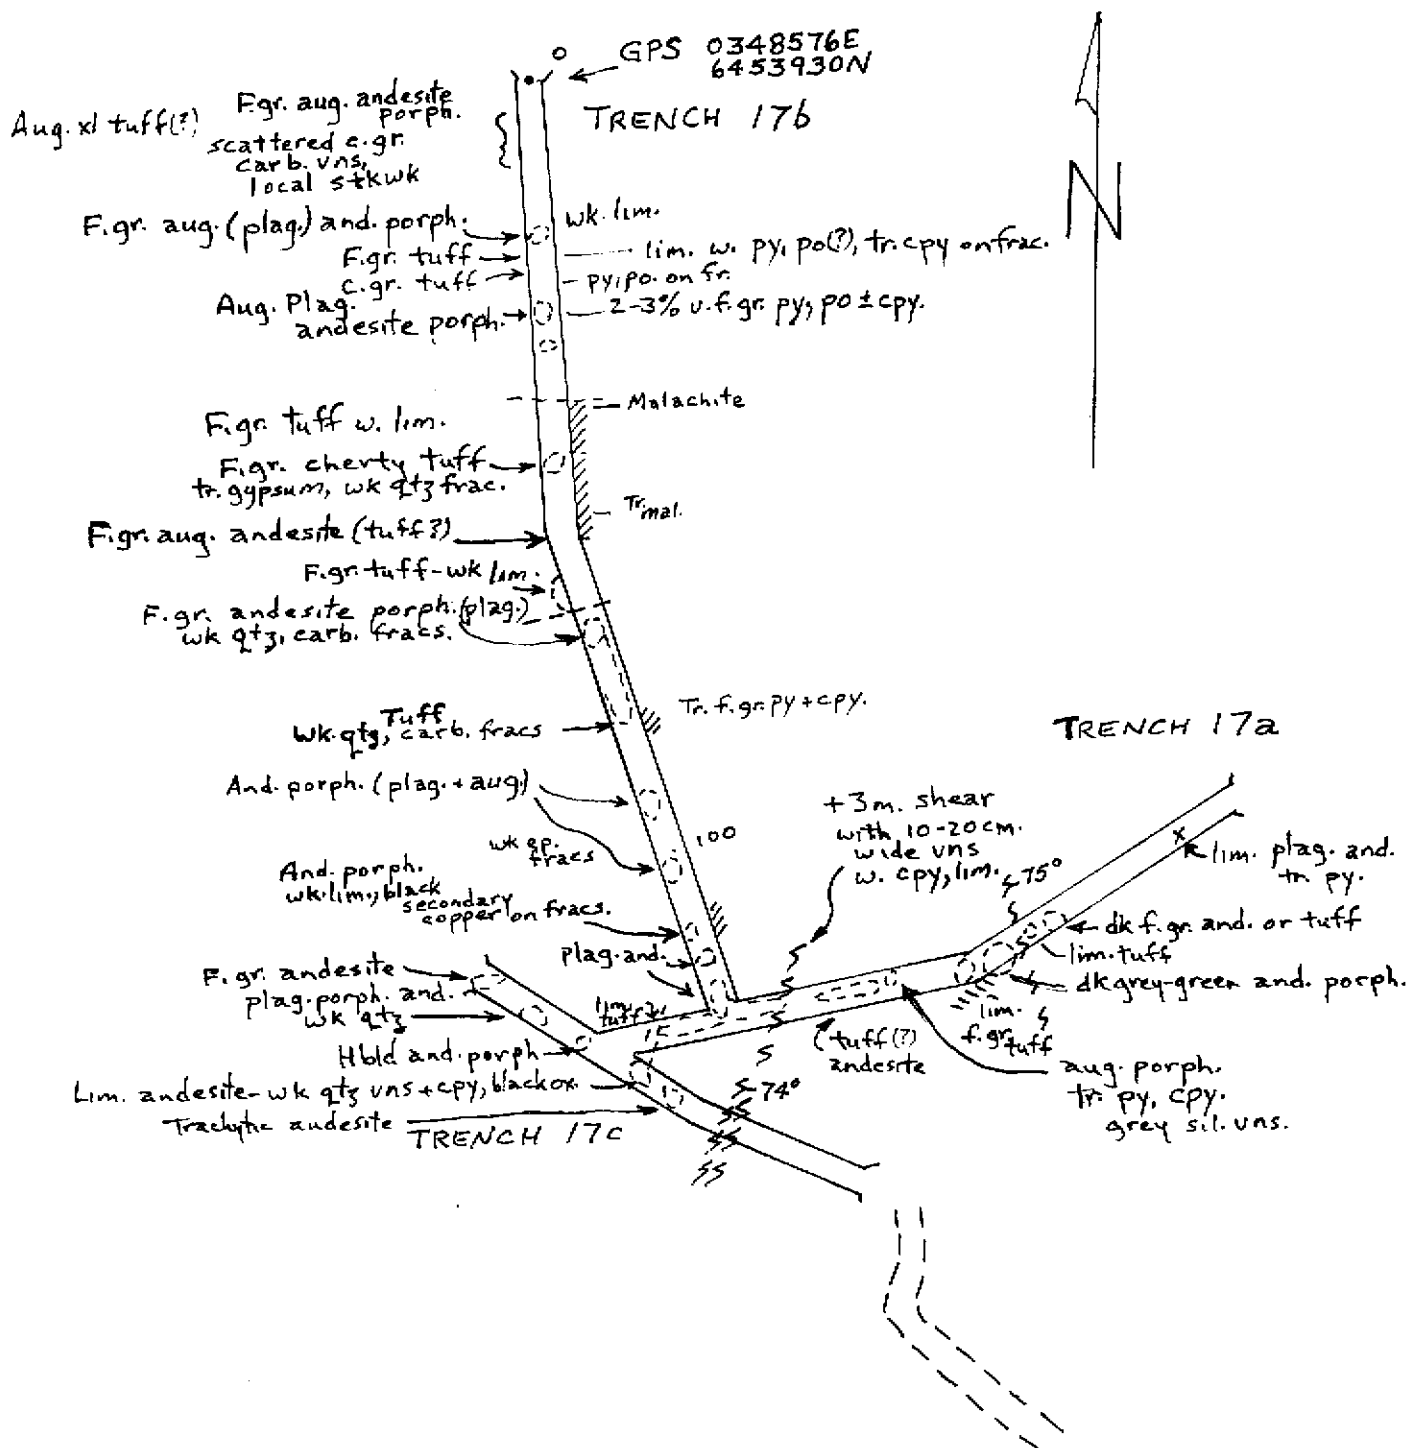 GPS 0348576E
6453930N
TRENCH 17b
Aug. xl tuff(?)
F.gr. aug. andesite
porph.
scattered c.gr.
carb. vns,
local stkwk
N
F.gr. aug. (plag.) and. porph.
wk. lim.
F.gr. tuff
lim. w. py, po(?), tr. cpy on frac.
c.gr. tuff
py, po. on fr.
Aug. Plag.
andesite porph.
2-3% v.f.gr. py, po ± cpy.
Malachite
F.gr. tuff w. lim.
F.gr. cherty tuff
tr. gypsum, wk qtz frac.
Tr. mal.
F.gr. aug. andesite (tuff?)
F.gr. tuff - wk lim.
F.gr. andesite porph. (plag.)
wk qtz, carb. fracs.
Tr. f.gr. py + cpy.
Tuff
Wk. qtz, carb. fracs
TRENCH 17a
And. porph. (plag. + aug.)
100
wk ep.
fracs
+3m. shear
with 10-20cm.
wide vns
w. cpy, lim.
75°
lim. plag. and.
tr. py.
And. porph.
wk. lim., black
secondary
copper on fracs.
dk f.gr. and. or tuff
lim. tuff
dk grey-green and. porph.
plag. and.
F. gr. andesite
plag. porph. and.
wk qtz
lim.
tuff
15
lim.
f.gr. tuff
(tuff(?)
andesite
aug. porph.
tr. py, cpy.
grey sil. vns.
Hbld and. porph
Lim. andesite - wk qtz vns + cpy, black ox.
74°
Trachytic andesite
TRENCH 17c